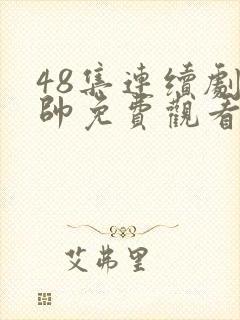 48集連續劇
帥免費觀看
艾弗里